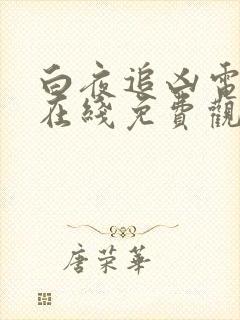 白夜追凶電
在綫免費觀
唐荣華